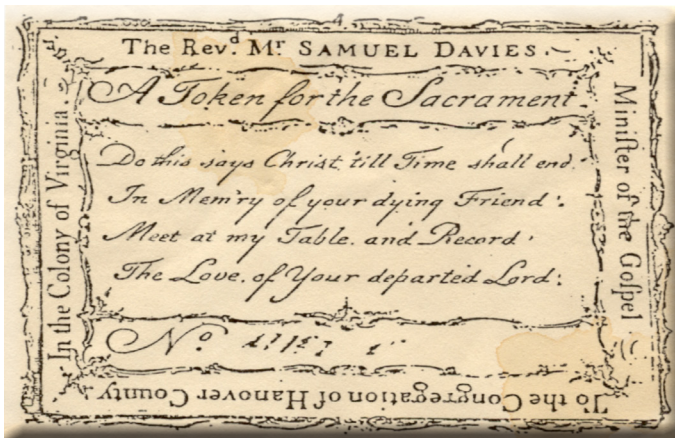 The Rev.ᵈ Mʳ SAMUEL DAVIES.
Miniſter of the Goſpel
To the Congregation of Hanover County.
In the Colony of Virginia.
A Token for the Sacrament.
Do this says Christ, 'till Time shall end.
In Mem'ry of your dying Friend:
Meet at my Table. and Record
The Love. of Your departed Lord:
Nº